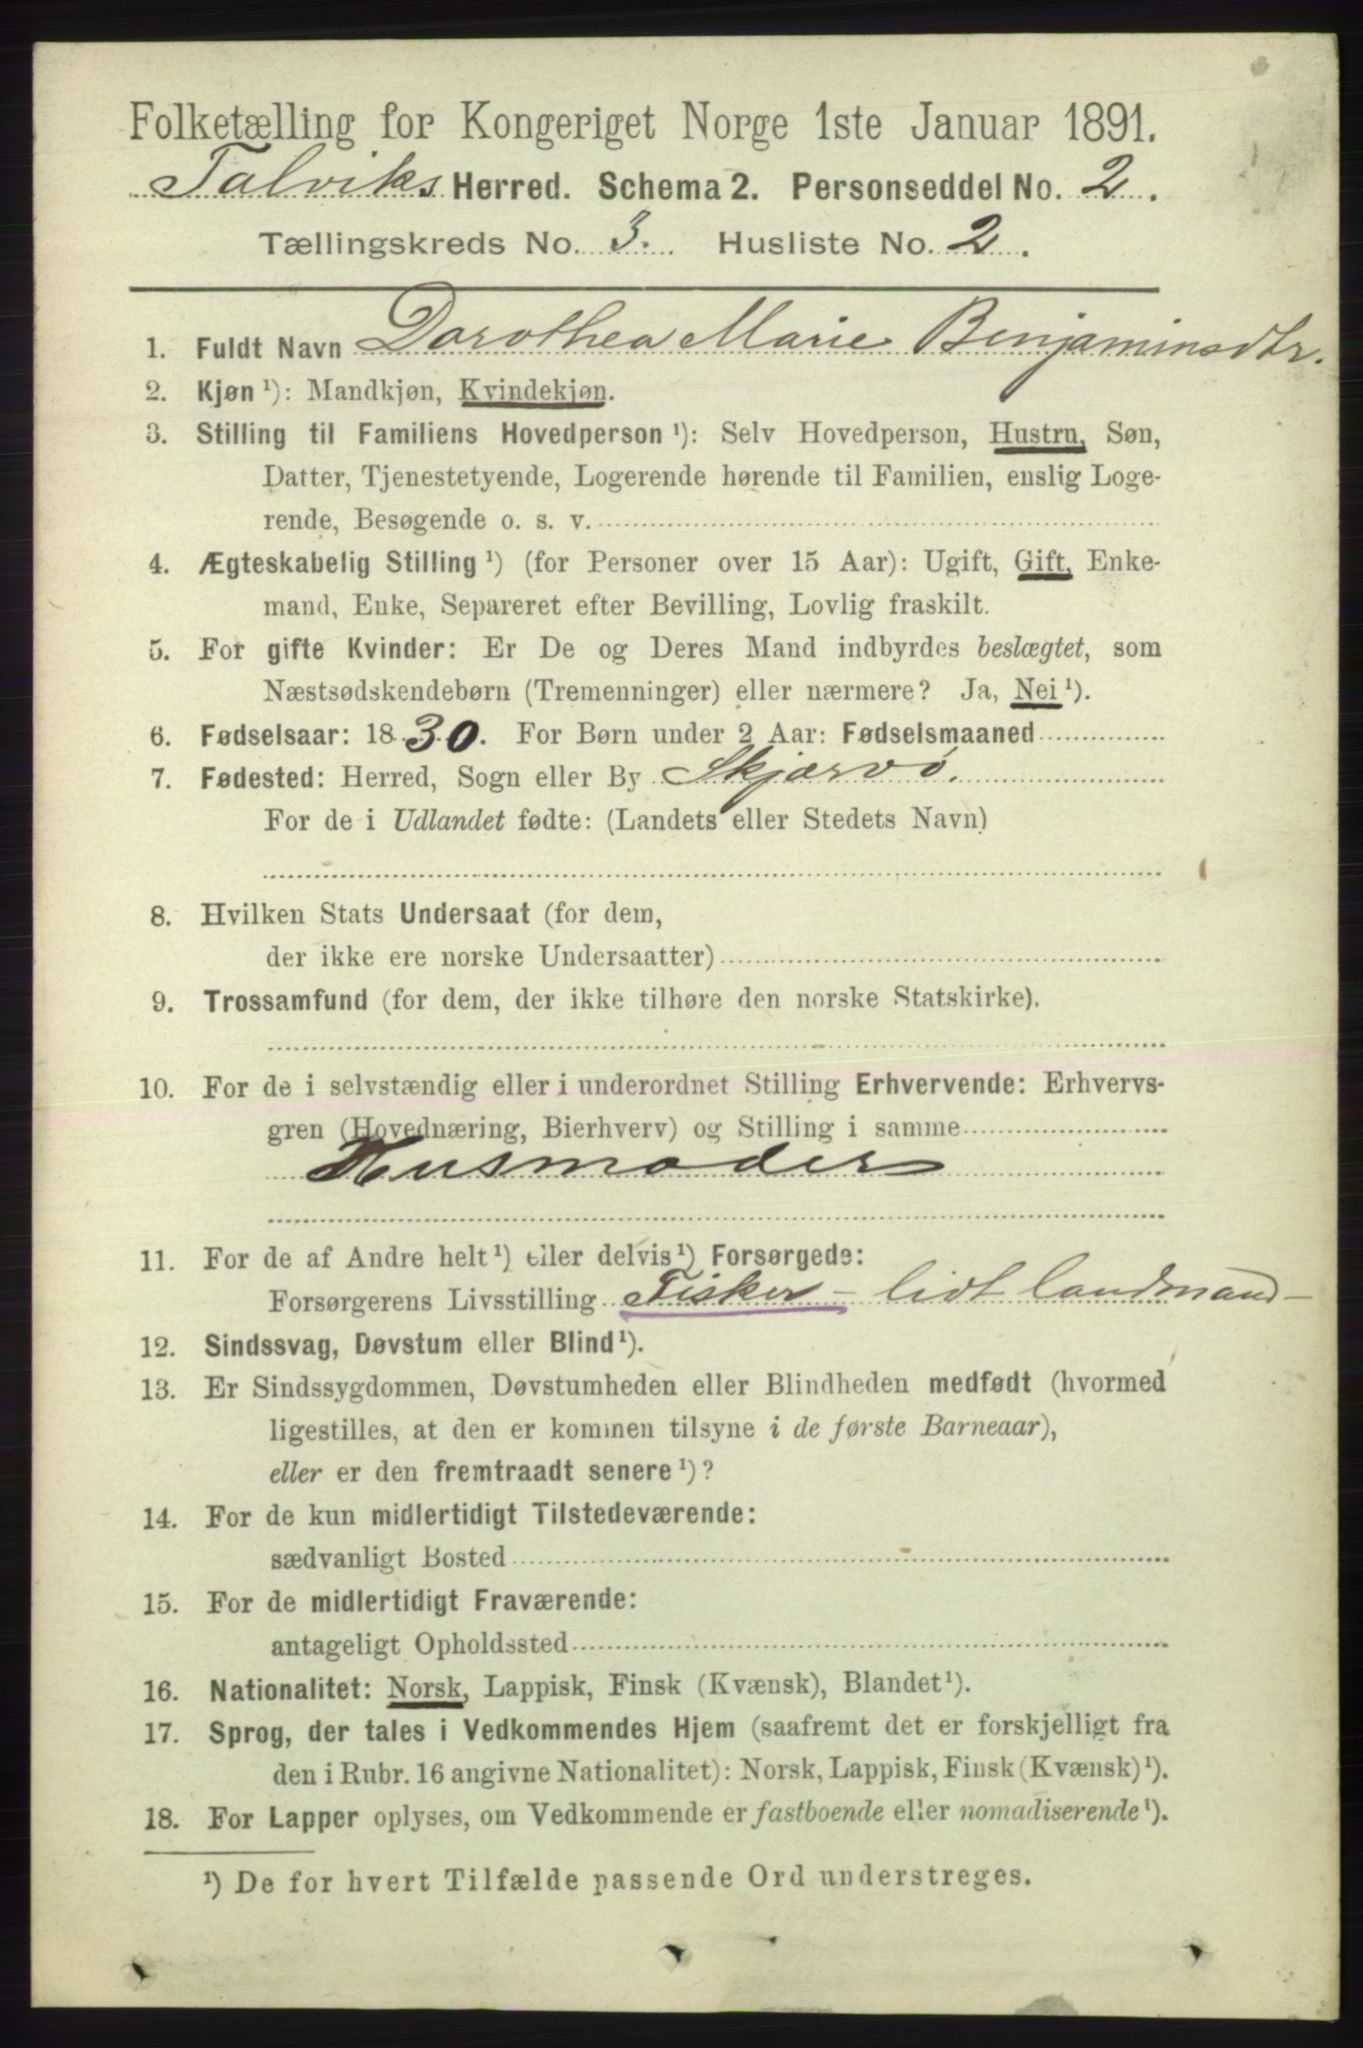 Folketælling for Kongeriget Norge 1ste Januar 1891.
Talviks Herred. Schema 2. Personseddel No. 2.
Tællingskreds No. 3. Husliste No. 2.
1. Fuldt Navn Dorothea Marie Benjaminsdtr.
2. Kjøn ¹): Mandkjøn, Kvindekjøn.
3. Stilling til Familiens Hovedperson ¹): Selv Hovedperson, Hustru, Søn,
Datter, Tjenestetyende, Logerende hørende til Familien, enslig Loge-
rende, Besøgende o. s. v.
4. Ægteskabelig Stilling ¹) (for Personer over 15 Aar): Ugift, Gift, Enke-
mand, Enke, Separeret efter Bevilling, Lovlig fraskilt.
5. For gifte Kvinder: Er De og Deres Mand indbyrdes beslægtet, som
Næstsødskendebørn (Tremenninger) eller nærmere? Ja, Nei ¹).
6. Fødselsaar: 1830. For Børn under 2 Aar: Fødselsmaaned
7. Fødested: Herred, Sogn eller By Skjærvø.
For de i Udlandet fødte: (Landets eller Stedets Navn)
8. Hvilken Stats Undersaat (for dem,
der ikke ere norske Undersaatter)
9. Trossamfund (for dem, der ikke tilhøre den norske Statskirke).
10. For de i selvstændig eller i underordnet Stilling Erhvervende: Erhvervs-
gren (Hovednæring, Bierhverv) og Stilling i samme
Husmoder
11. For de af Andre helt ¹) eller delvis ¹) Forsørgede:
Forsørgerens Livsstilling Fisker - lidt landmand -
12. Sindssvag, Døvstum eller Blind ¹).
13. Er Sindssygdommen, Døvstumheden eller Blindheden medfødt (hvormed
ligestilles, at den er kommen tilsyne i de første Barneaar),
eller er den fremtraadt senere ¹)?
14. For de kun midlertidigt Tilstedeværende:
sædvanligt Bosted
15. For de midlertidigt Fraværende:
antageligt Opholdssted
16. Nationalitet: Norsk, Lappisk, Finsk (Kvænsk), Blandet ¹).
17. Sprog, der tales i Vedkommendes Hjem (saafremt det er forskjelligt fra
den i Rubr. 16 angivne Nationalitet): Norsk, Lappisk, Finsk (Kvænsk) ¹).
18. For Lapper oplyses, om Vedkommende er fastboende eller nomadiserende ¹).
¹) De for hvert Tilfælde passende Ord understreges.